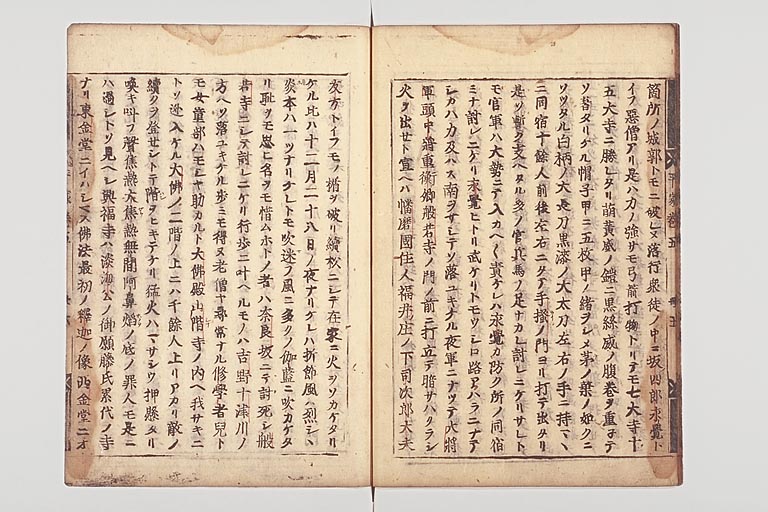 箇所ノ城郭トモニ破レヌ落行衆徒ノ中ニ坂四郎永覺ト
イフ惡僧アリ是ハ力ノ強サモ弓箭打物トリテモ七大寺十
五大寺ニ勝レタリ萠黄威ノ鎧ニ黒絲威ノ腹巻ヲ重子テ
ソ着タリケル帽子甲ニ五枚甲ノ緒ヲシメ茅ノ葉ノ如クニ
ソツタル白柄ノ大長刀黒漆ノ大太刀左右ノ手ニ持マヽ
ニ同宿十餘人前後左右ニタテ手掻ノ門ヨリ打テ出タリ
是ソ暫ク支ヘタル多クノ官兵馬ノ足ナカレ討レニケリサレト
モ官軍ハ大勢ニテ入カヘ〱責ケレハ永覺カ防ク所ノ同宿
ミナ討レニケリ永覺ヒトリ武ケリトモウシロアハラニナリテ
シカハ力及ハス南ヲサシテソ落ユキケル夜軍ニナツテ大將
軍頭中將重衡卿般若寺ノ門ノ前ニ打立テ暗サハクラシ
火ヲ出セト宣ヘハ幡磨國住人福井庄ノ下司次郎大夫
友方トイフモノ楯ヲ破リ續松ニシテ在家ニ火ヲソカケタリ
ケル比ハ十二月二十八日ノ夜ナリケレハ折節風ハ烈シヽ
炎本ハ一ツナリケレトモ吹迷フ風ニ多クノ伽藍ニ吹カケタ
リ恥ヲモ思ヒ名ヲモ惜ムホトノ者ハ奈良坂ニテ討死シ般
若寺ニシテ討レニケリ行歩ニ叶ヘルモノハ吉野十津川ノ
方ヘソ落ユキケル歩ミモ得ヌ老僧ヤ尋常ナル修學者兒ト
モ女童部ハモシヤ助カルト大佛殿山階寺ノ内ヘ我サキニ
トソ迯入ケル大佛ノ二階ノ上ニハ千餘人上リアカリ敵ノ
續クヲ登セシトテ階ヲヒキテケリ猛火ハマサシウ押懸タリ
喚キ叫フ聲焦熱大焦熱無間阿鼻焰ノ底ノ罪人モ是ニ
ハ過シトソ見ヘシ興福寺ハ淡海公ノ御願藤氏累代ノ寺
ナリ東金堂ニイハシマス佛法最初ノ釋迦ノ像西金堂ニオ